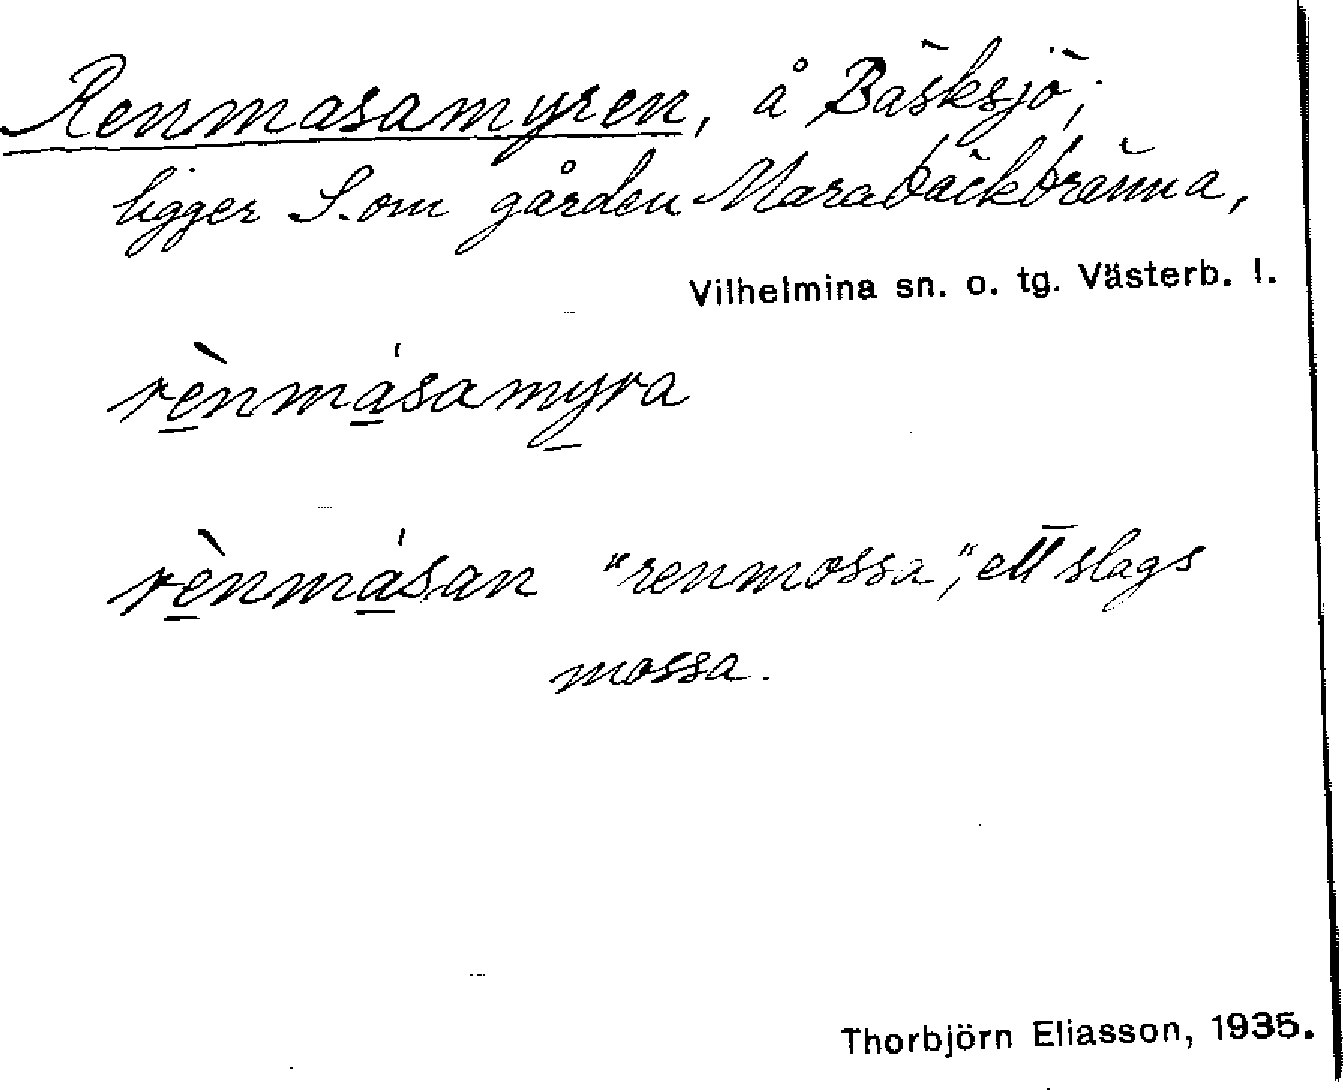 Renmasamyren, å Bäsksjö,
ligger S. om gården Marabäckbränna,
Vilhelmina sn. o. tg. Västerb. l.
rènmásamyra
rènmásan "renmossa", ett slags
mossa.
Thorbjörn Eliasson, 1935.